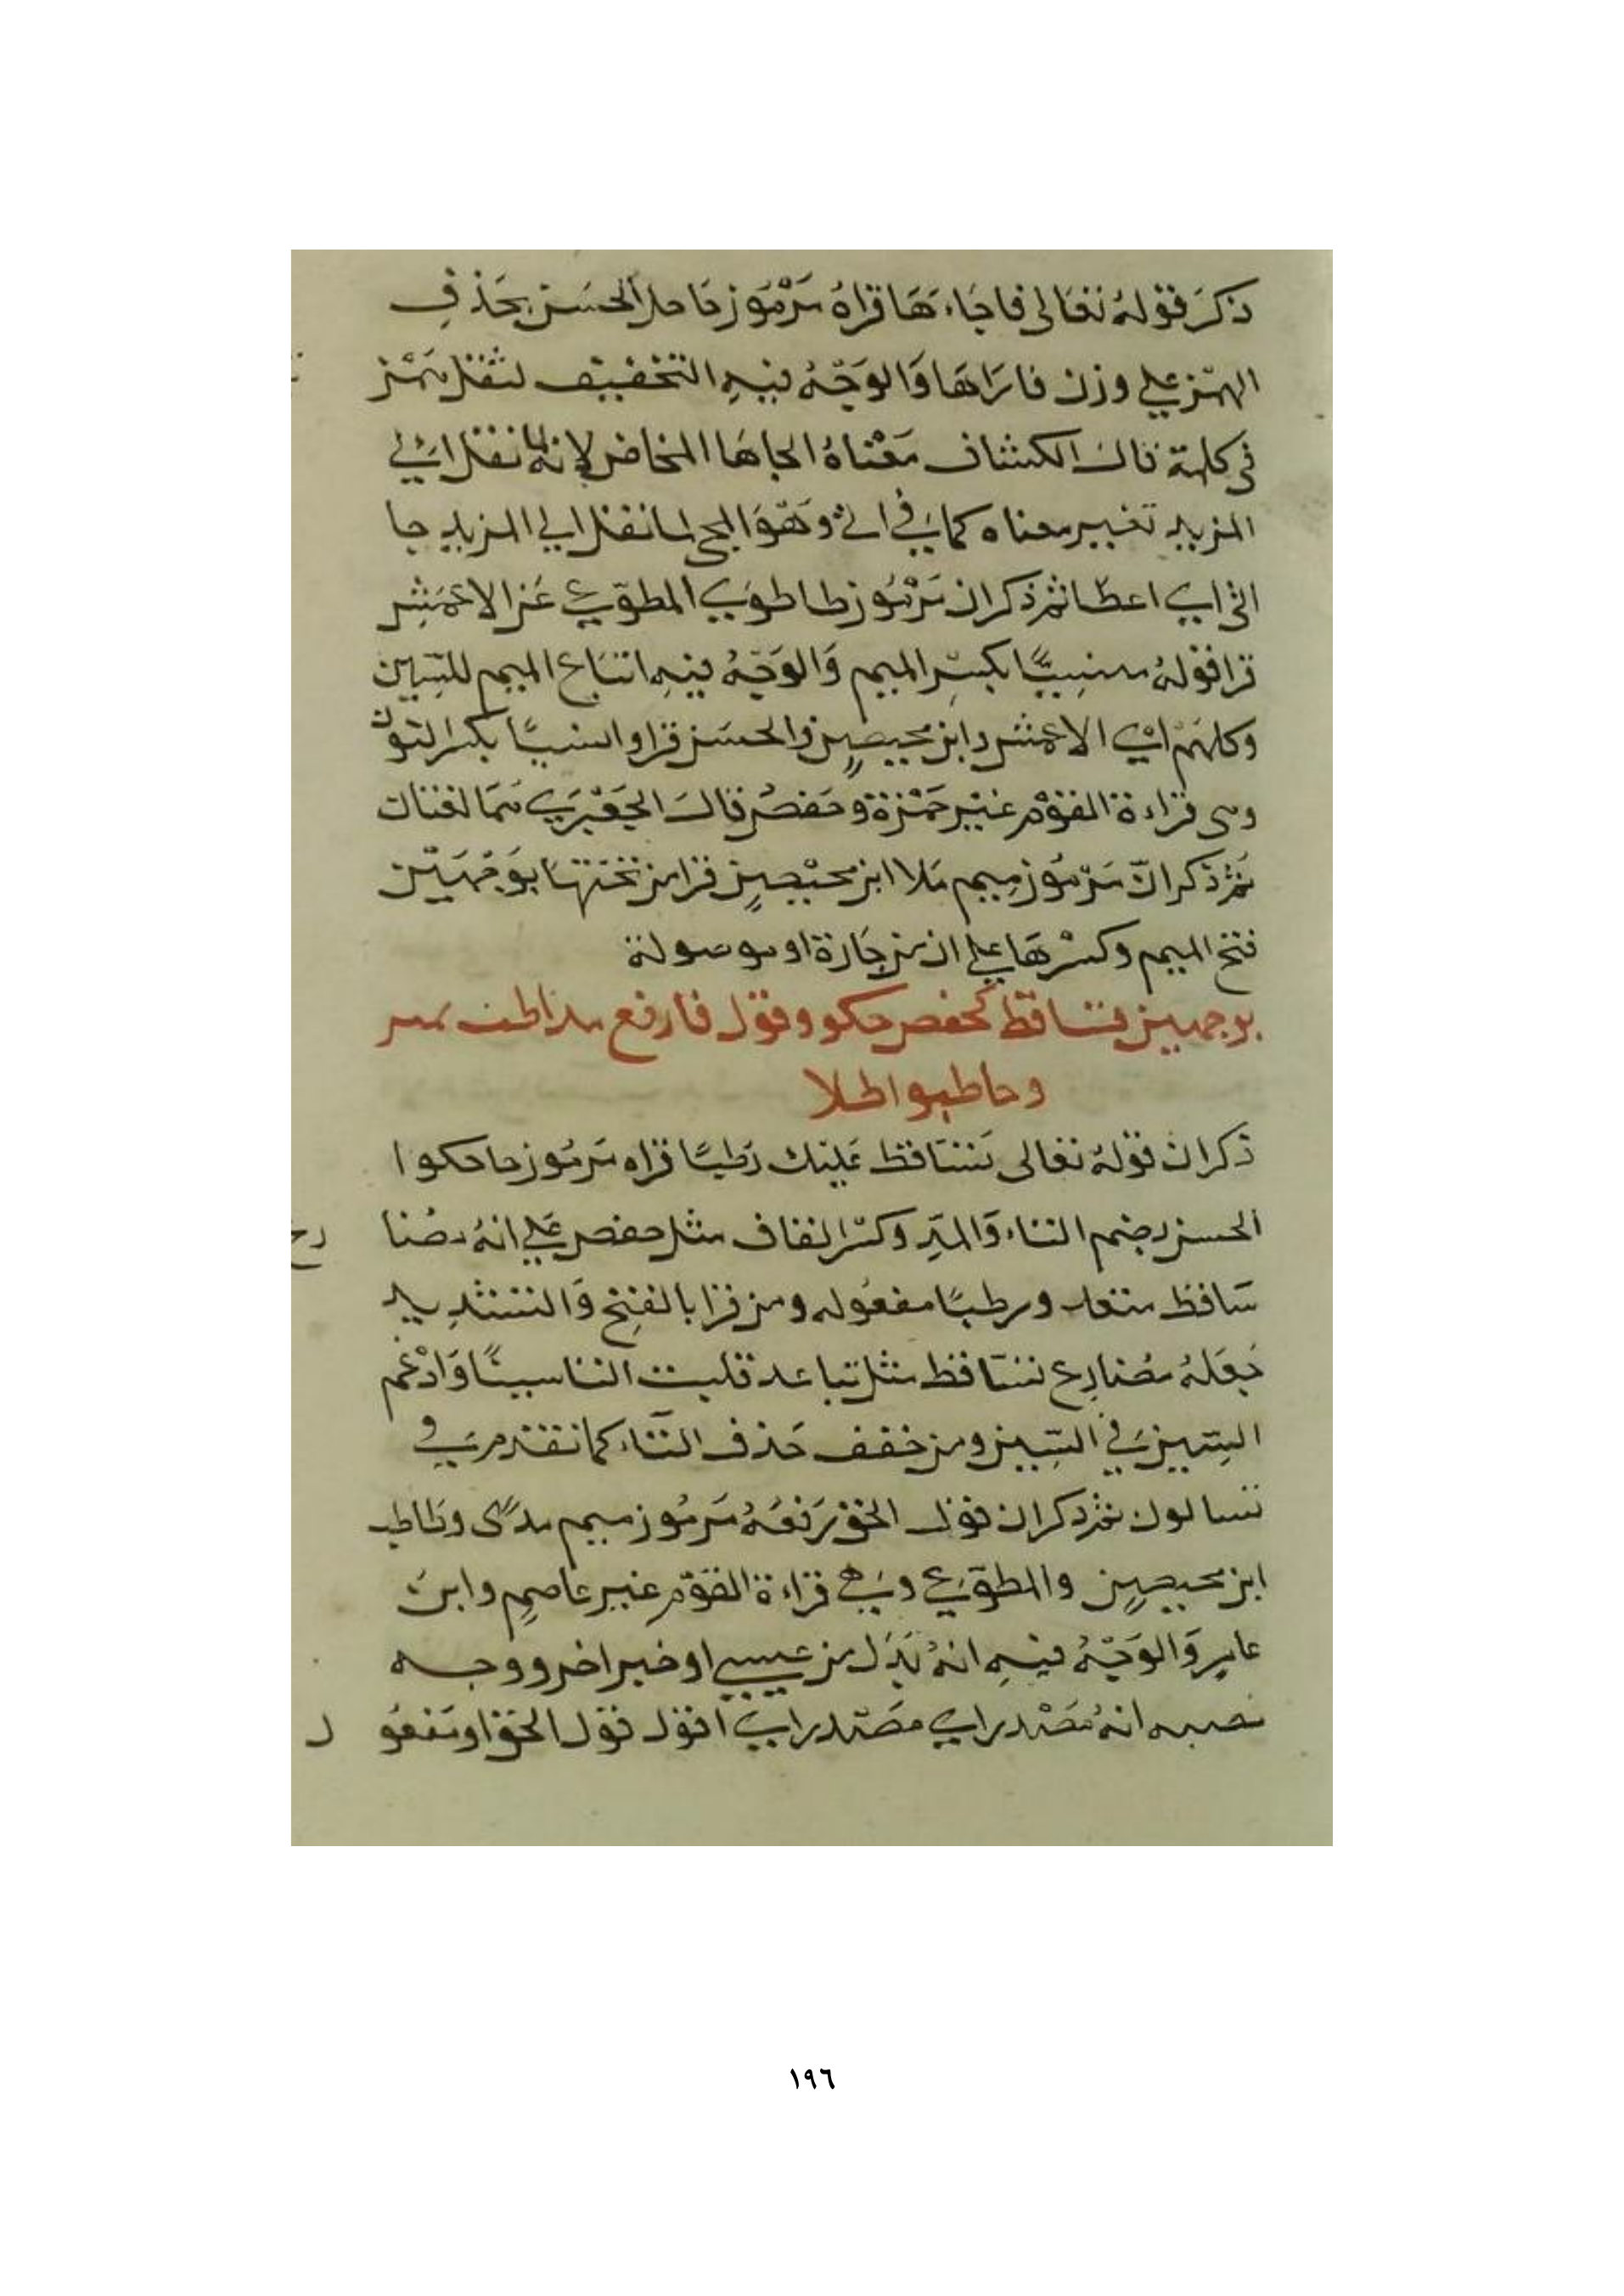 ذكرَ قَوْلهُ تعَالى فاجَاءهَا قراهُ مَرْمُوز حَا حلا الحسَن بحَذفِ
الهمْز علي وزن فاراهَا وَالوَجْهُ فيهِ التخفيف لثقل همْز
في كلمة قال الكشاف مَعْناهُ الجاها المخاض لانه لما نقل الي
المزيد تغيير معناه كما في اتي وهَوَ المجي لما نقل الي المزيد جا
اتي اي اعطا ثم ذكر ان مَرْمُوز طا طوَي المطوّعي عَن الاعمَشِ
قرا قولهُ منسِيًّا بكسْرِ الميم وَالوَجْهُ فيهِ اتبَاع الميم للسِّين
وكلهمْ اي الاعمش وابن محيصِنٍ والحسَن قراوا نسيًا بكسر النون
وهي قراءة القوْم غيْر حَمْزة وحَفص قال الجَعْبَري همَا لغتان
ثم ذكر انّ مَرْمُوز ميم مَلا ابن محيْصِنٍ قرا من تحتهَا بوَجْهَيْن
فتح الميم وكسْرهَا علي ان من جَارة او موصولة
بوجهين تساقط كحفص حكو وقول فارفع مذاطب
وخاطبوا
ذكر ان قوْلهُ تعَالى تسَّاقط عَليك رُطبًا قراه مَرمُوز حا حكوا
الحسن بضم التاء وَالمدِّ وكسْر القاف مثل حفص علي انهُ مضا
سَاقط متعد ورطبًا مفعُوله ومن قرا بالفتح وَالتشديد
جَعَلهُ مضارع تتسَاقط مثل تباعد قلبت التا سينًا وَادْغم
السِّين في السِّين ومن خفف حَذف التَّاء كما تقدم في
تسالون ثم ذكر ان قول الحق رَفعَهُ مَرمُوز ميم مدًى وطا طب
ابن محيصِنٍ والمطوّعي وهي قراءة القوْم غير عاصم وابن
عامِر وَالوَجْهُ فيهِ انهُ بَدَل من عيسي او خبر اخر ووجه
نصبه انهُ مَصْدر اي مصْدر اي اقول قول الحق او مَفعُو